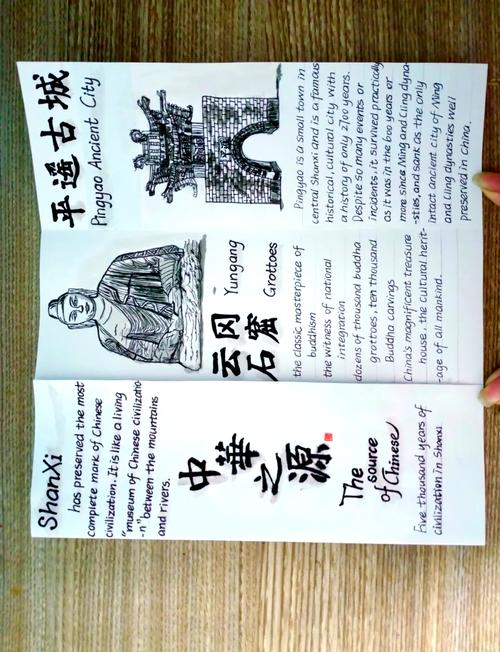 ShanXi
has preserved the most
complete mark of Chinese
civilization. It is like a living
"museum of Chinese civilizatio
-n" between the mountains
and rivers.
中華之源
The
source
of Chinese
Five thousand years of
civilization in Shanxi
云冈 Yungang
石窟 Grottoes
the classic masterpiece of
buddhism
the witness of national
integration
dozens of thousand buddha
grottoes, ten thousand
Buddha carvings
China's magnificent treasure
house, the cultural herit-
-age of all mankind.
平遥古城
Pingyao Ancient City
Pingyao is a small town in
central Shanxi and is a famous
historical, cultural city with
a history of only 2700 years.
Despite so many events or
incidents, it survived practically
as it was in the 600 years or
more since Ming and Qing dyna-
-sties, and sank as the only
Intact ancient city of Ning
and Qing dynasties well
preserved in China.